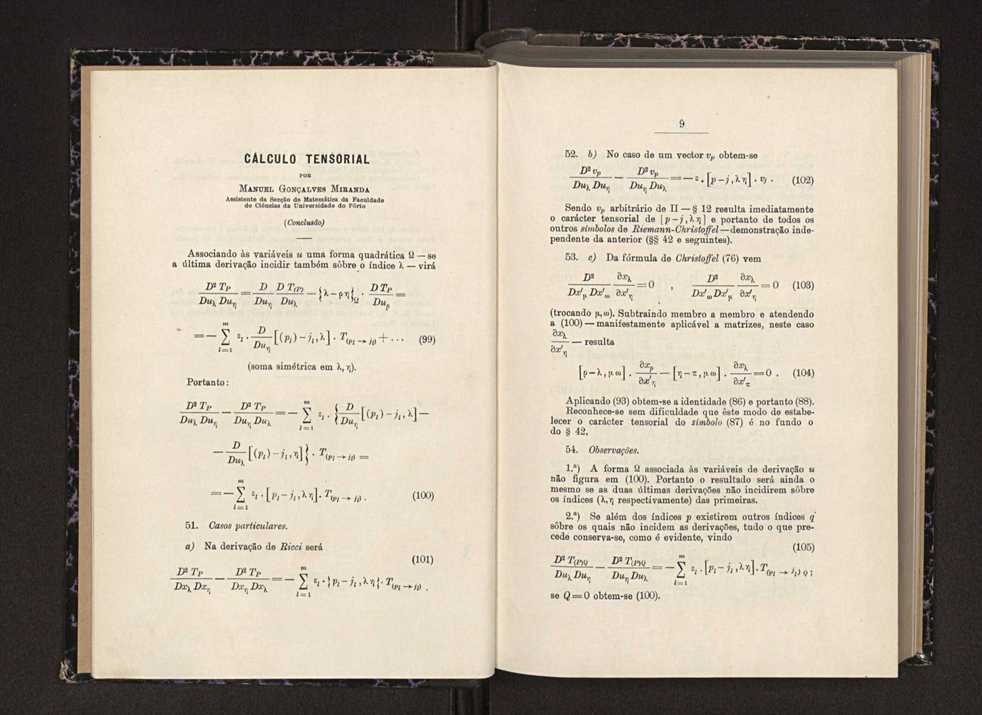 CÁLCULO TENSORIAL
POR
MANUEL GONÇALVES MIRANDA
Assistente da Secção de Matemática da Faculdade
de Ciências da Universidade do Pôrto
(Conclusão)
Associando às variáveis u uma forma quadrática Ω — se
a última derivação incidir também sôbre o índice λ — virá
D² T_P / Du_λ Du_η = D / Du_η · D T_(P) / Du_λ — {λ — ρ η}_Ω · D T_P / Du_ρ =
= — Σ_{l=1}^{m} z_l · D / Du_η [(p_l) — j_l, λ] · T_(p_l → j_l) + . . . (99)
(soma simétrica em λ, η).
Portanto:
D² T_P / Du_λ Du_η — D² T_P / Du_η Du_λ = — Σ_{l=1}^{m} z_l · { D / Du_η [(p_l) — j_l, λ] —
— D / Du_λ [(p_l) — j_l, η] } · T_(p_l → j_l) =
= — Σ_{l=1}^{m} z_l · [p_l — j_l, λ η] · T_(p_l → j_l) . (100)
51. Casos particulares.
a) Na derivação de Ricci será
(101)
D² T_P / Dx_λ Dx_η — D² T_P / Dx_η Dx_λ = — Σ_{l=1}^{m} z_l · {p_l — j_l, λ η} · T_(p_l → j_l) .
9
52. b) No caso de um vector v_p obtem-se
D² v_p / Du_λ Du_η — D² v_p / Du_η Du_λ = — z . [p — j, λ η] . v_j . (102)
Sendo v_p arbitrário de II — § 12 resulta imediatamente
o carácter tensorial de [p — j, λ η] e portanto de todos os
outros símbolos de Riemann-Christoffel — demonstração inde-
pendente da anterior (§§ 42 e seguintes).
53. c) Da fórmula de Christoffel (76) vem
D² / Dx'_μ Dx'_ω ∂x_λ / ∂x'_η = 0 , D² / Dx'_ω Dx'_μ ∂x_λ / ∂x'_η = 0 (103)
(trocando μ, ω). Subtraindo membro a membro e atendendo
a (100) — manifestamente aplicável a matrizes, neste caso
∂x_λ / ∂x'_η — resulta
[ρ — λ, μ ω] . ∂x_ρ / ∂x'_η — [η — π, μ ω] . ∂x_λ / ∂x'_π = 0 . (104)
Aplicando (93) obtem-se a identidade (86) e portanto (88).
Reconhece-se sem dificuldade que êste modo de estabe-
lecer o carácter tensorial do símbolo (87) é no fundo o
do § 42.
54. Observações.
1.ª) A forma Ω associada às variáveis de derivação u
não figura em (100). Portanto o resultado será ainda o
mesmo se as duas últimas derivações não incidirem sôbre
os índices (λ, η respectivamente) das primeiras.
2.ª) Se além dos índices p existirem outros índices q
sôbre os quais não incidem as derivações, tudo o que pre-
cede conserva-se, como é evidente, vindo
(105)
D² T_(P)Q / Du_λ Du_η — D² T_(P)Q / Du_η Du_λ = — Σ_{l=1}^{m} z_l . [p_l — j_l, λ η] . T_(p_l → j_l) Q ;
se Q = 0 obtem-se (100).